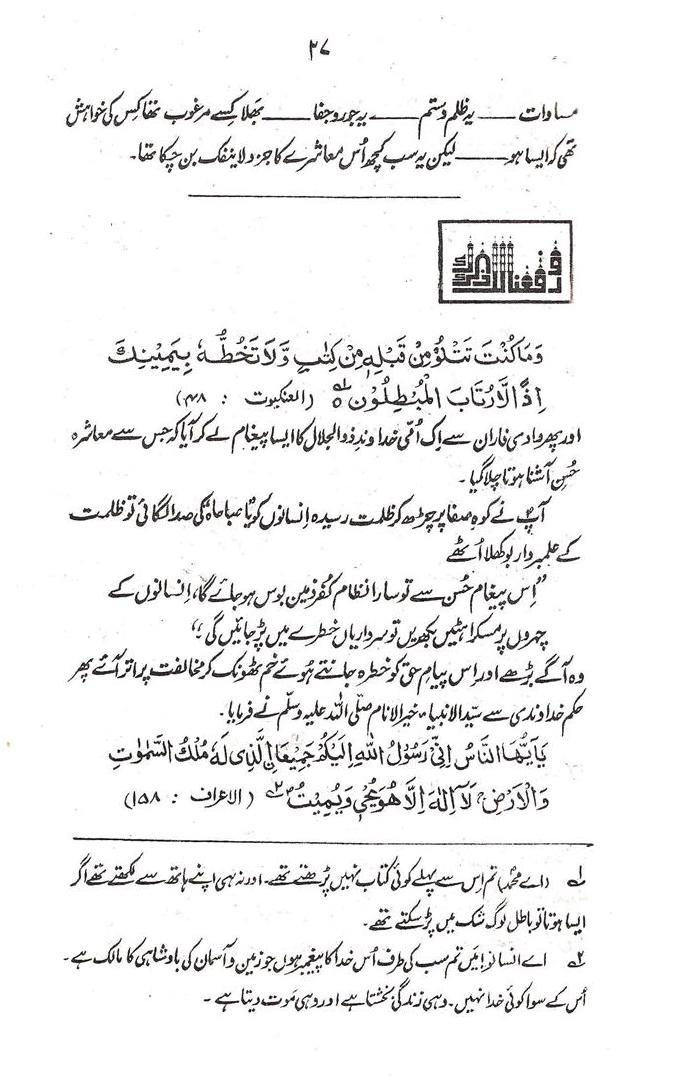 ۲۷
مساوات ——— یہ ظلم وستم ——— یہ جور و جفا ——— بھلا کسے مرغوب تھا کس کی خواہش
تھی کہ ایسا ہو ——— لیکن یہ سب کچھ اُس معاشرے کا جزو لاینفک بن چکا تھا۔
ورفعنا لک ذکرک
وَمَا كُنْتَ تَتْلُوْ مِنْ قَبْلِهٖ مِنْ كِتٰبٍ وَّلَا تَخُطُّهٗ بِيَمِيْنِكَ
اِذًا لَّارْتَابَ الْمُبْطِلُوْنَ ۱؎ (العنکبوت : ۴۸)
اور پھر وادی فاران سے اِک اُمّی خداوندِ ذوالجلال کا ایسا پیغام لے کر آیا کہ جس سے معاشرہ
حُسن آشنا ہوتا چلا گیا۔
آپؐ نے کوہِ صفا پر چڑھ کر ظلمت رسیدہ انسانوں کو یَا صباحاہ کی صدا لگائی تو ظلمت
کے علمبردار بوکھلا اُٹھے
”اِس پیغامِ حُسن سے تو سارا نظامِ کُفر زمین بوس ہو جائے گا، اِنسانوں کے
چہروں پر مسکراہٹیں بکھریں تو سرداریاں خطرے میں پڑ جائیں گی۔“
وہ آگے بڑھے اور اِس پیامِ حق کو خطرہ جانتے ہُوئے خم ٹھونک کر مخالفت پر اتر آئے پھر
حکمِ خداوندی سے سیّد الانبیاء، خیر الانام صلّی اللہ علیہ وسلّم نے فرمایا۔
يَآ اَيُّهَا النَّاسُ اِنِّيْ رَسُوْلُ اللّٰهِ اِلَيْكُمْ جَمِيْعَا اِ۟لَّذِيْ لَهٗ مُلْكُ السَّمٰوٰتِ
وَالْاَرْضِ ۚ لَآ اِلٰهَ اِلَّا هُوَ يُحْيٖ وَيُمِيْتُ ۲؎ (الاعراف : ۱۵۸)
۱؎ (اے محمدؐ) تم اِس سے پہلے کوئی کتاب نہیں پڑھتے تھے۔ اور نہ ہی اپنے ہاتھ سے لکھتے تھے اگر
ایسا ہوتا تو باطل لوگ شک میں پڑ سکتے تھے۔
۲؎ اے انسانو! میَں تم سب کی طرف اُس خدا کا پیغمبر ہوں جو زمین و آسمان کی بادشاہی کا مالک ہے۔
اُس کے سوا کوئی خدا نہیں۔ وہی زندگی بخشتا ہے اور وہی مَوت دیتا ہے۔